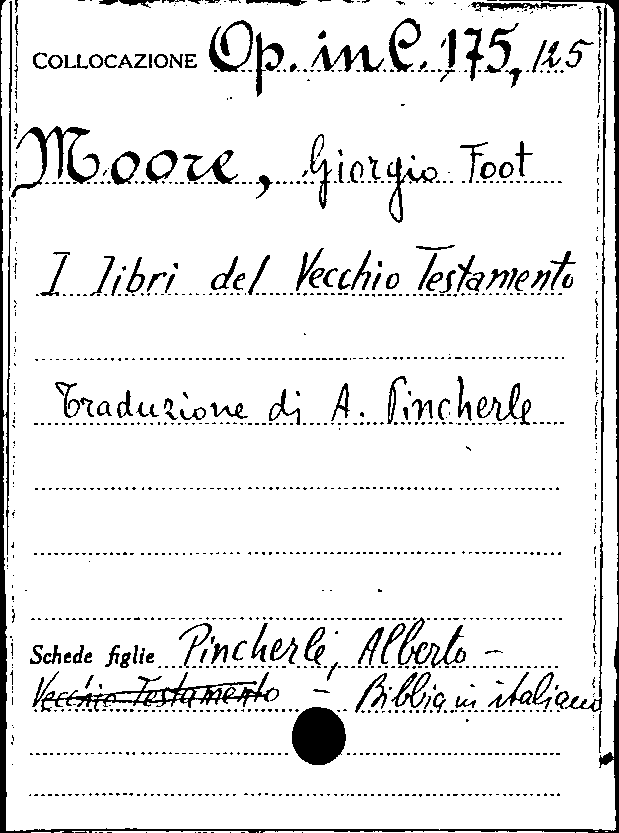 COLLOCAZIONE Op. in C. 175, 125
Moore, Giorgio Foot
I libri del Vecchio Testamento
Traduzione di A. Pincherle
Schede figlie Pincherle, Alberto -
Vecchio Testamento - Bibbia in italiano